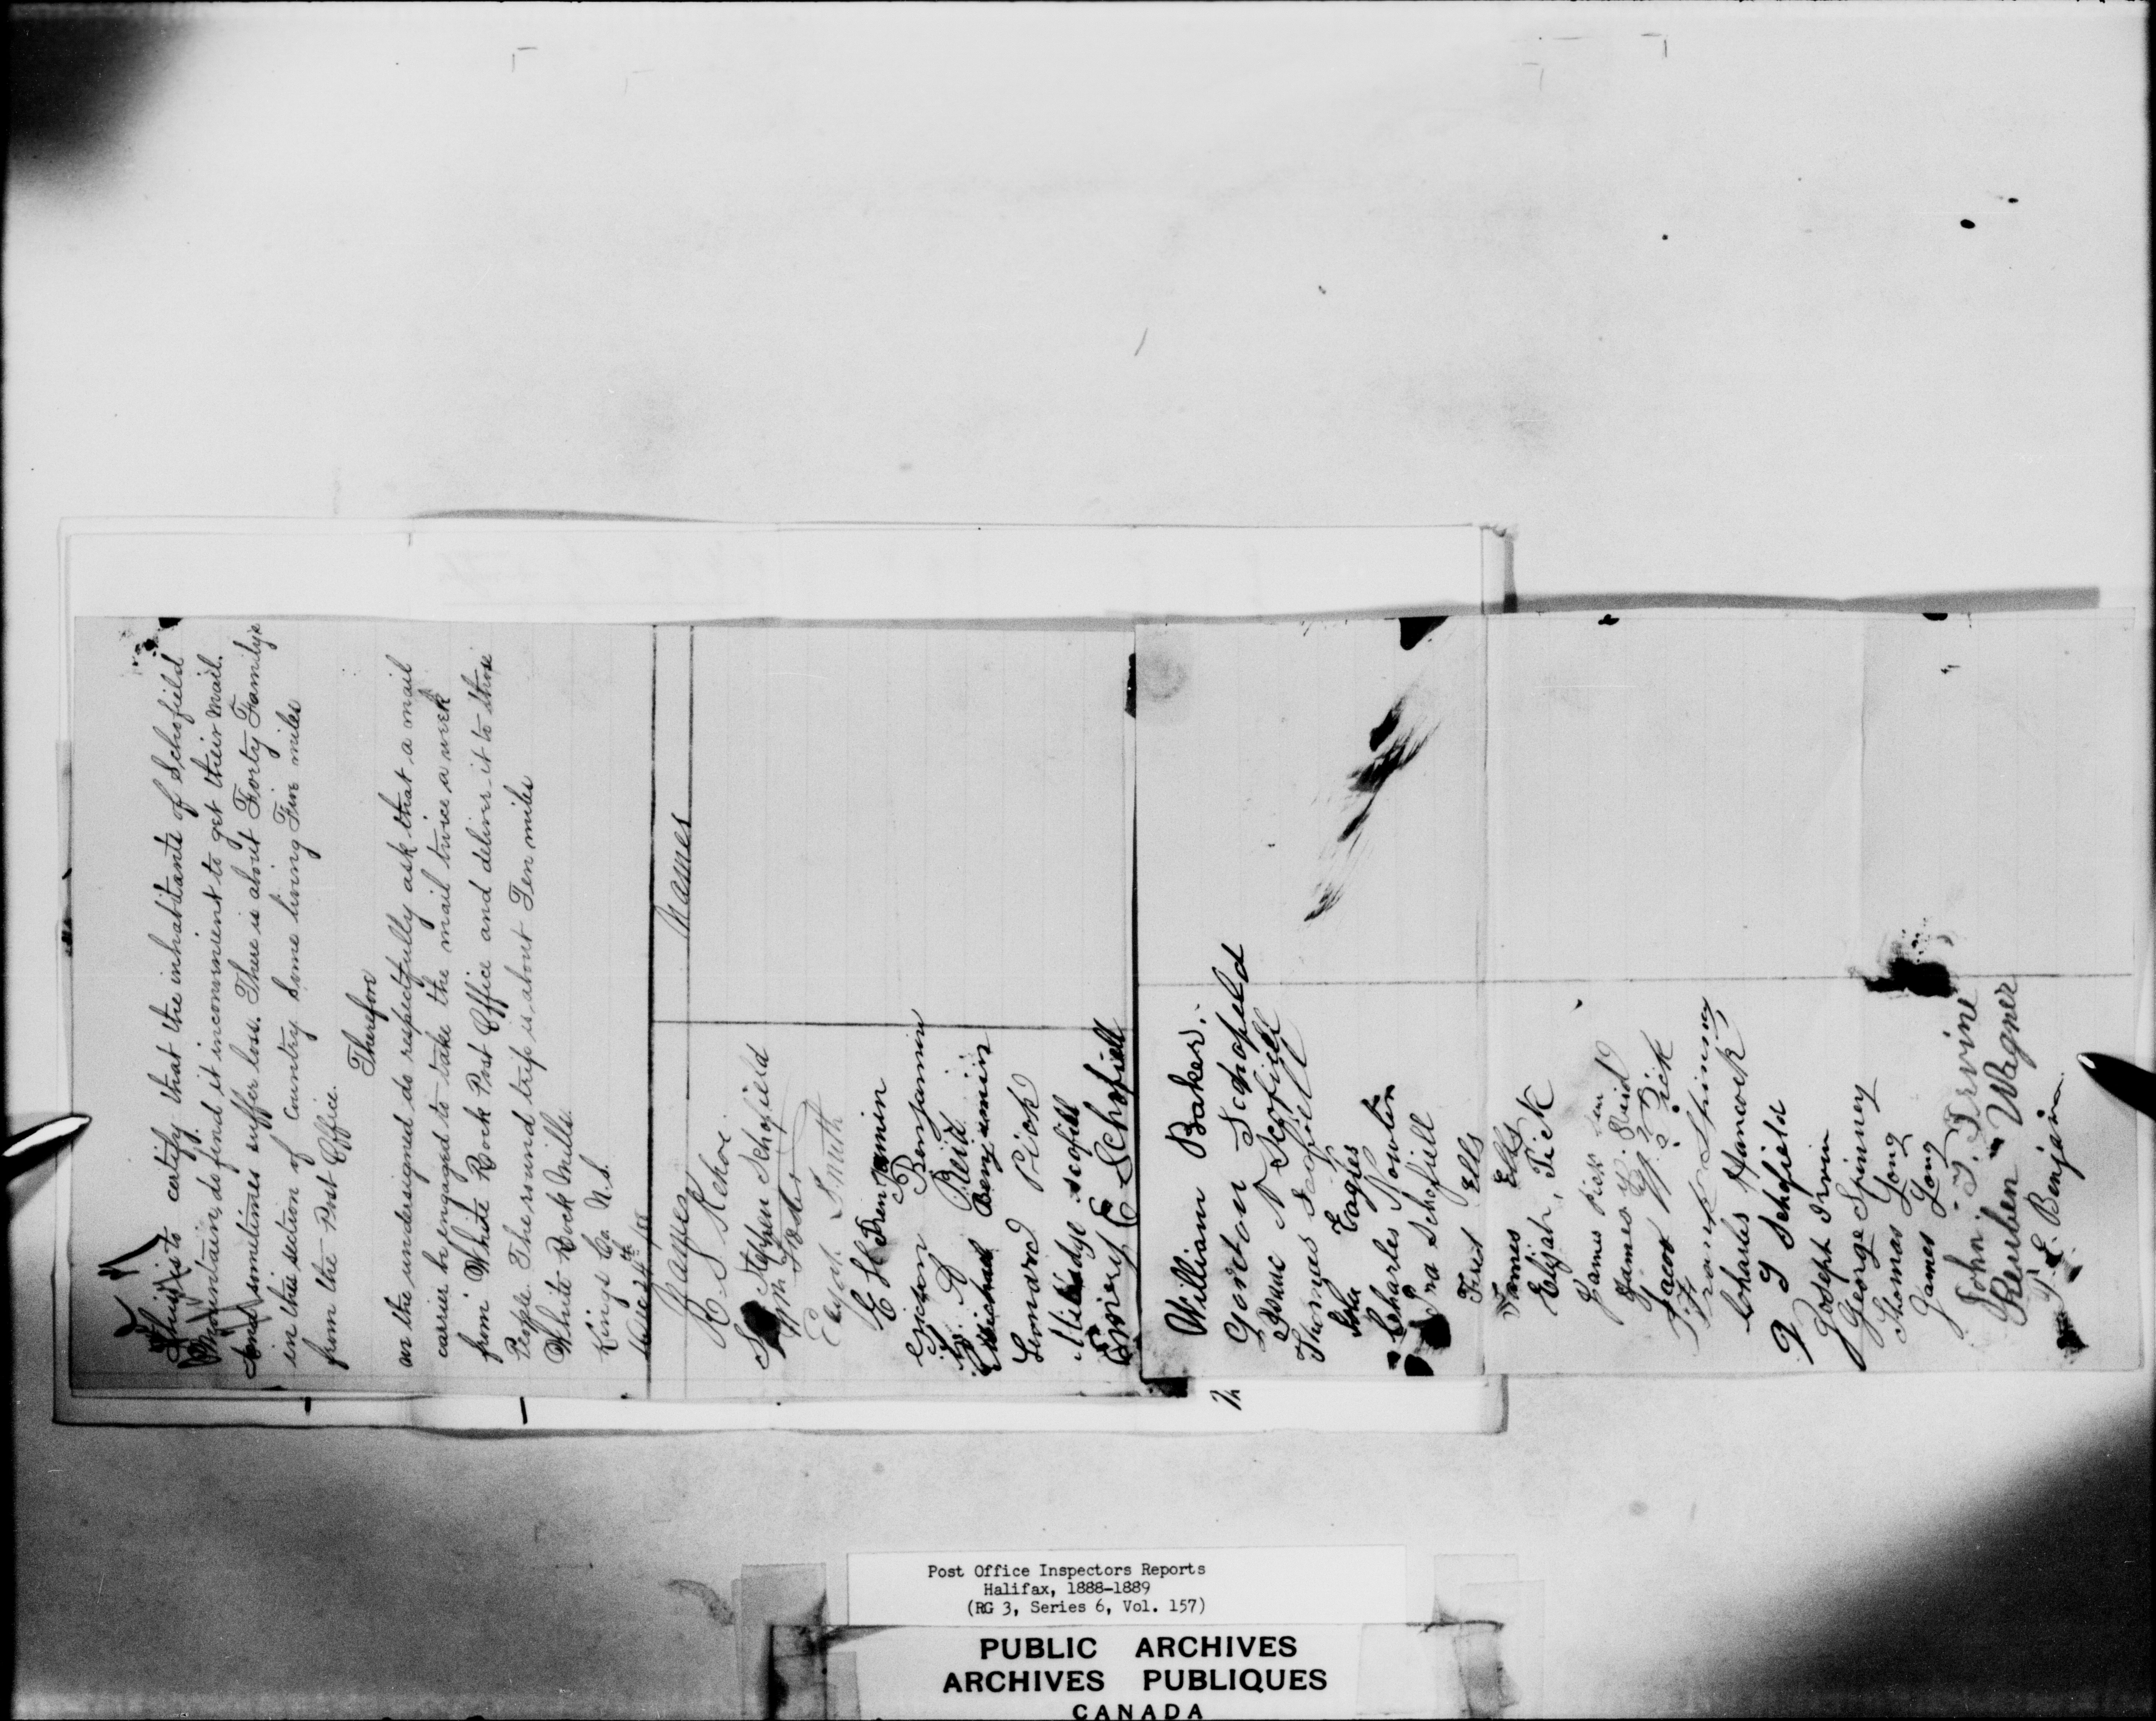 This is to certify that the inhabitants of Schofield
Mountain, do find it inconvenient to get their mail.
and sometimes suffer loss. There is about Forty Familys
in this section of Country. Some living Five miles
from the Post Office.
Therefore
we the undersigned do respectfully ask that a mail
carrier be engaged to take the mail twice a week
from White Rock Post Office and deliver it to those
People. The round trip is about Ten miles
White Rock Mills
Kings Co. N.S.
Dec 24th /88
Names
Names
R. S. Kehoe
Stephen Schofield
Wm
Smith
E H Benjamin
Benjamin
Reid
Michael Benjamin
Leonard Pick
scofill
Emery E Schofiell
William Baker.
Gorton Schofield
N Scofiell
Thomas
John Eagles
Charles Nowlin
Ira Schofiell
Fred Ells
James Ells
Elijah, Pick
James Pick
James Reid
Jacob Pick
Frank Spinney
Charles Hancock
Schofield
Joseph Irvin
George Spinney
Thomas Long
James Long
John. T. Irvine
Reuben Wagner
Benjamin.
Post Office Inspectors Reports
Halifax, 1888-1889
(RG 3, Series 6, Vol. 157)
PUBLIC ARCHIVES
ARCHIVES PUBLIQUES
CANADA